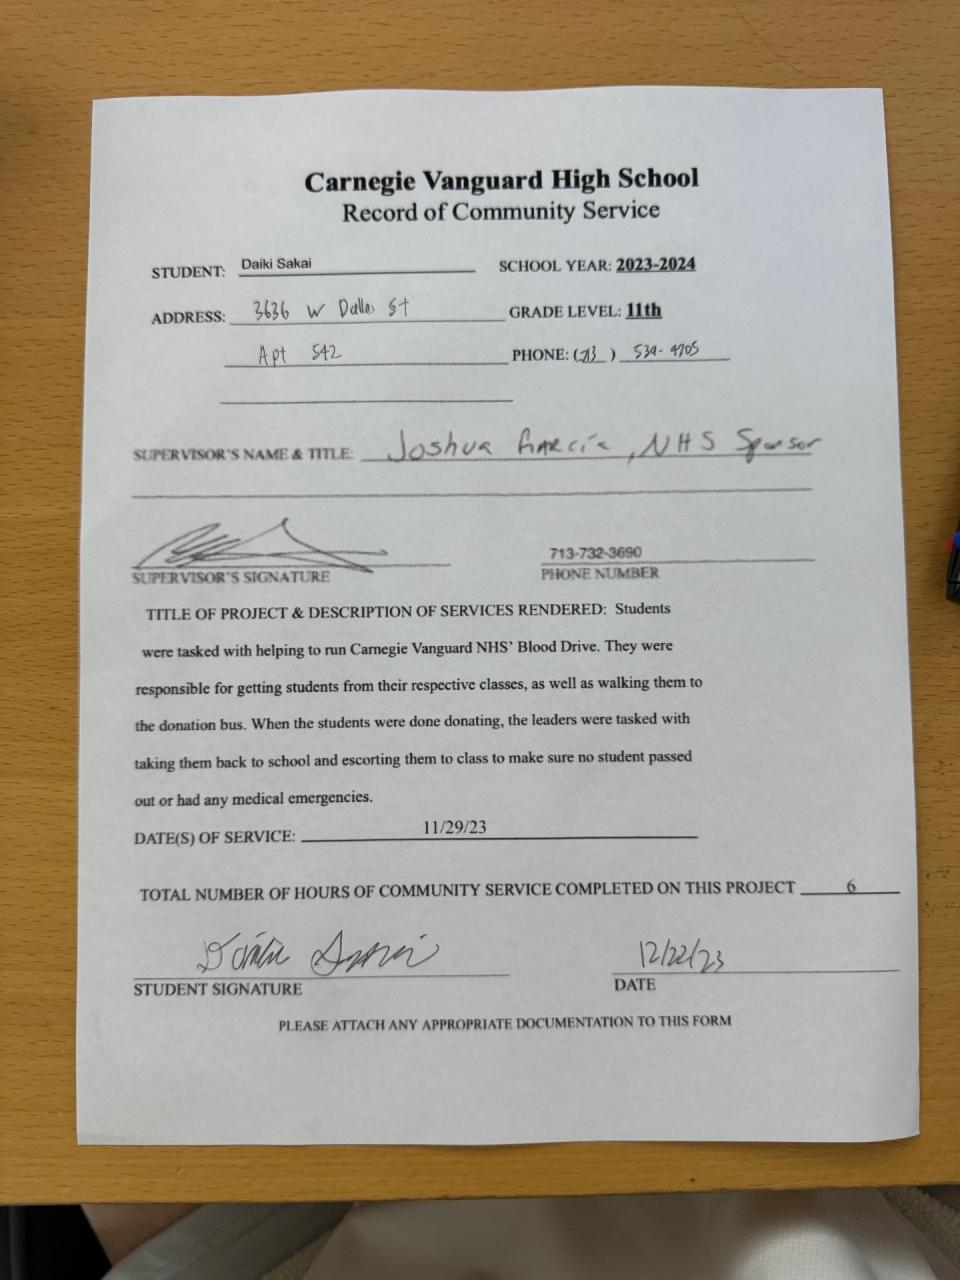 Carnegie Vanguard High School
Record of Community Service
STUDENT: Daiki Sakai SCHOOL YEAR: 2023-2024
ADDRESS: 3636 W Dallas St GRADE LEVEL: 11th
Apt 542 PHONE: (713) 539-4705
SUPERVISOR'S NAME & TITLE: Joshua Garcia, NHS Sponsor
713-732-3690
SUPERVISOR'S SIGNATURE PHONE NUMBER
TITLE OF PROJECT & DESCRIPTION OF SERVICES RENDERED: Students
were tasked with helping to run Carnegie Vanguard NHS' Blood Drive. They were
responsible for getting students from their respective classes, as well as walking them to
the donation bus. When the students were done donating, the leaders were tasked with
taking them back to school and escorting them to class to make sure no student passed
out or had any medical emergencies.
DATE(S) OF SERVICE: 11/29/23
TOTAL NUMBER OF HOURS OF COMMUNITY SERVICE COMPLETED ON THIS PROJECT 6
12/22/23
STUDENT SIGNATURE DATE
PLEASE ATTACH ANY APPROPRIATE DOCUMENTATION TO THIS FORM